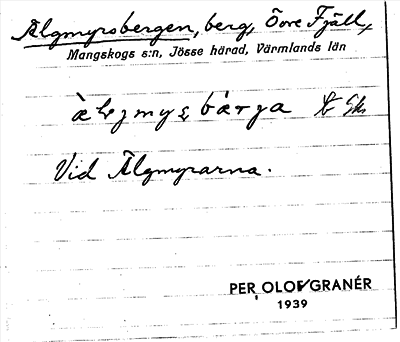 Älgmyrsbergen, berg, Övre Fjäll,
Mangskogs s:n, Jösse härad, Värmlands län
Vid Älgmyrarna.
PER OLOF GRANÉR
1939